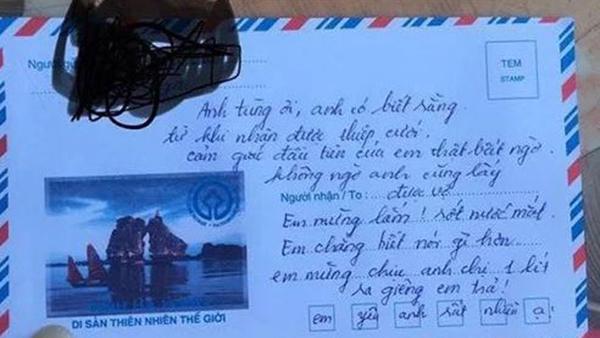 Người gửi
TEM
STAMP
Anh tùng ơi, anh có biết rằng
từ khi nhận được thiếp cưới.
cảm giác đầu tiên của em thật bất ngờ.
không ngờ anh cũng lấy
Người nhận / To : được vợ
Em mừng lắm ! rớt nước mắt.
Em chẳng biết nói gì hơn
em mừng chiu anh chi 1 lít
ra giêng em trả !
em yêu anh rất nhiều ạ!
DI SẢN THIÊN NHIÊN THẾ GIỚI